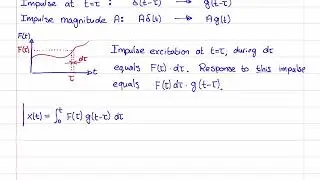 Impulse at t=τ : δ(t-τ) → g(t-τ)
Impulse magnitude A: Aδ(t) → Ag(t)
F(t)
F(τ)
dτ
t
τ
Impulse excitation at t=τ, during dτ
equals F(τ)·dτ. Response to this impulse
equals F(τ)dτ·g(t-τ).
x(t) = ∫₀ᵗ F(τ) g(t-τ) dτ